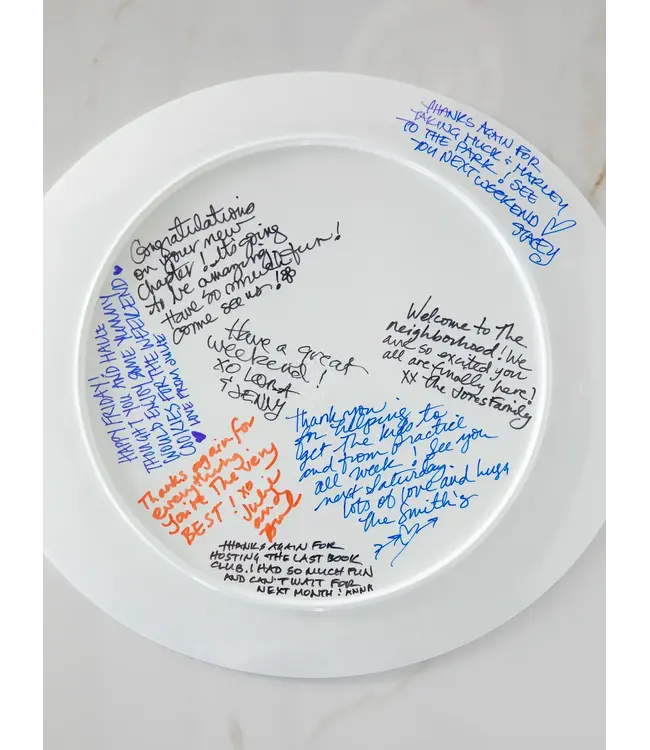 THANKS AGAIN FOR
TAKING HUCK & HARLEY
TO THE PARK! SEE
YOU NEXT WEEKEND ♡
STACEY
Congratulations
on your new
chapter! Its going
to be amazing.
Have so much fun!
come see us!
HAPPY FRIDAY!
THOUGHT YOU AND HALLE
WOULD ENJOY SOME YUMMY
COOKIES FOR THE WEEKEND ♥
♥ LOVE FROM JULIE
Have a great
weekend!
XO LANA
& JENNY
Welcome to The
neighborhood! We
are so excited you
all are finally here!
xx The Jones Family
Thank you
for helping to
get The kids to
and from practice
all week! See you
next Saturday.
lots of love and hugs
The Smith's
Thanks again for
everything.
You're The very
BEST! xo
Julie
and
THANKS AGAIN FOR
HOSTING THE LAST BOOK
CLUB. I HAD SO MUCH FUN
AND CAN'T WAIT FOR
NEXT MONTH! ANNA